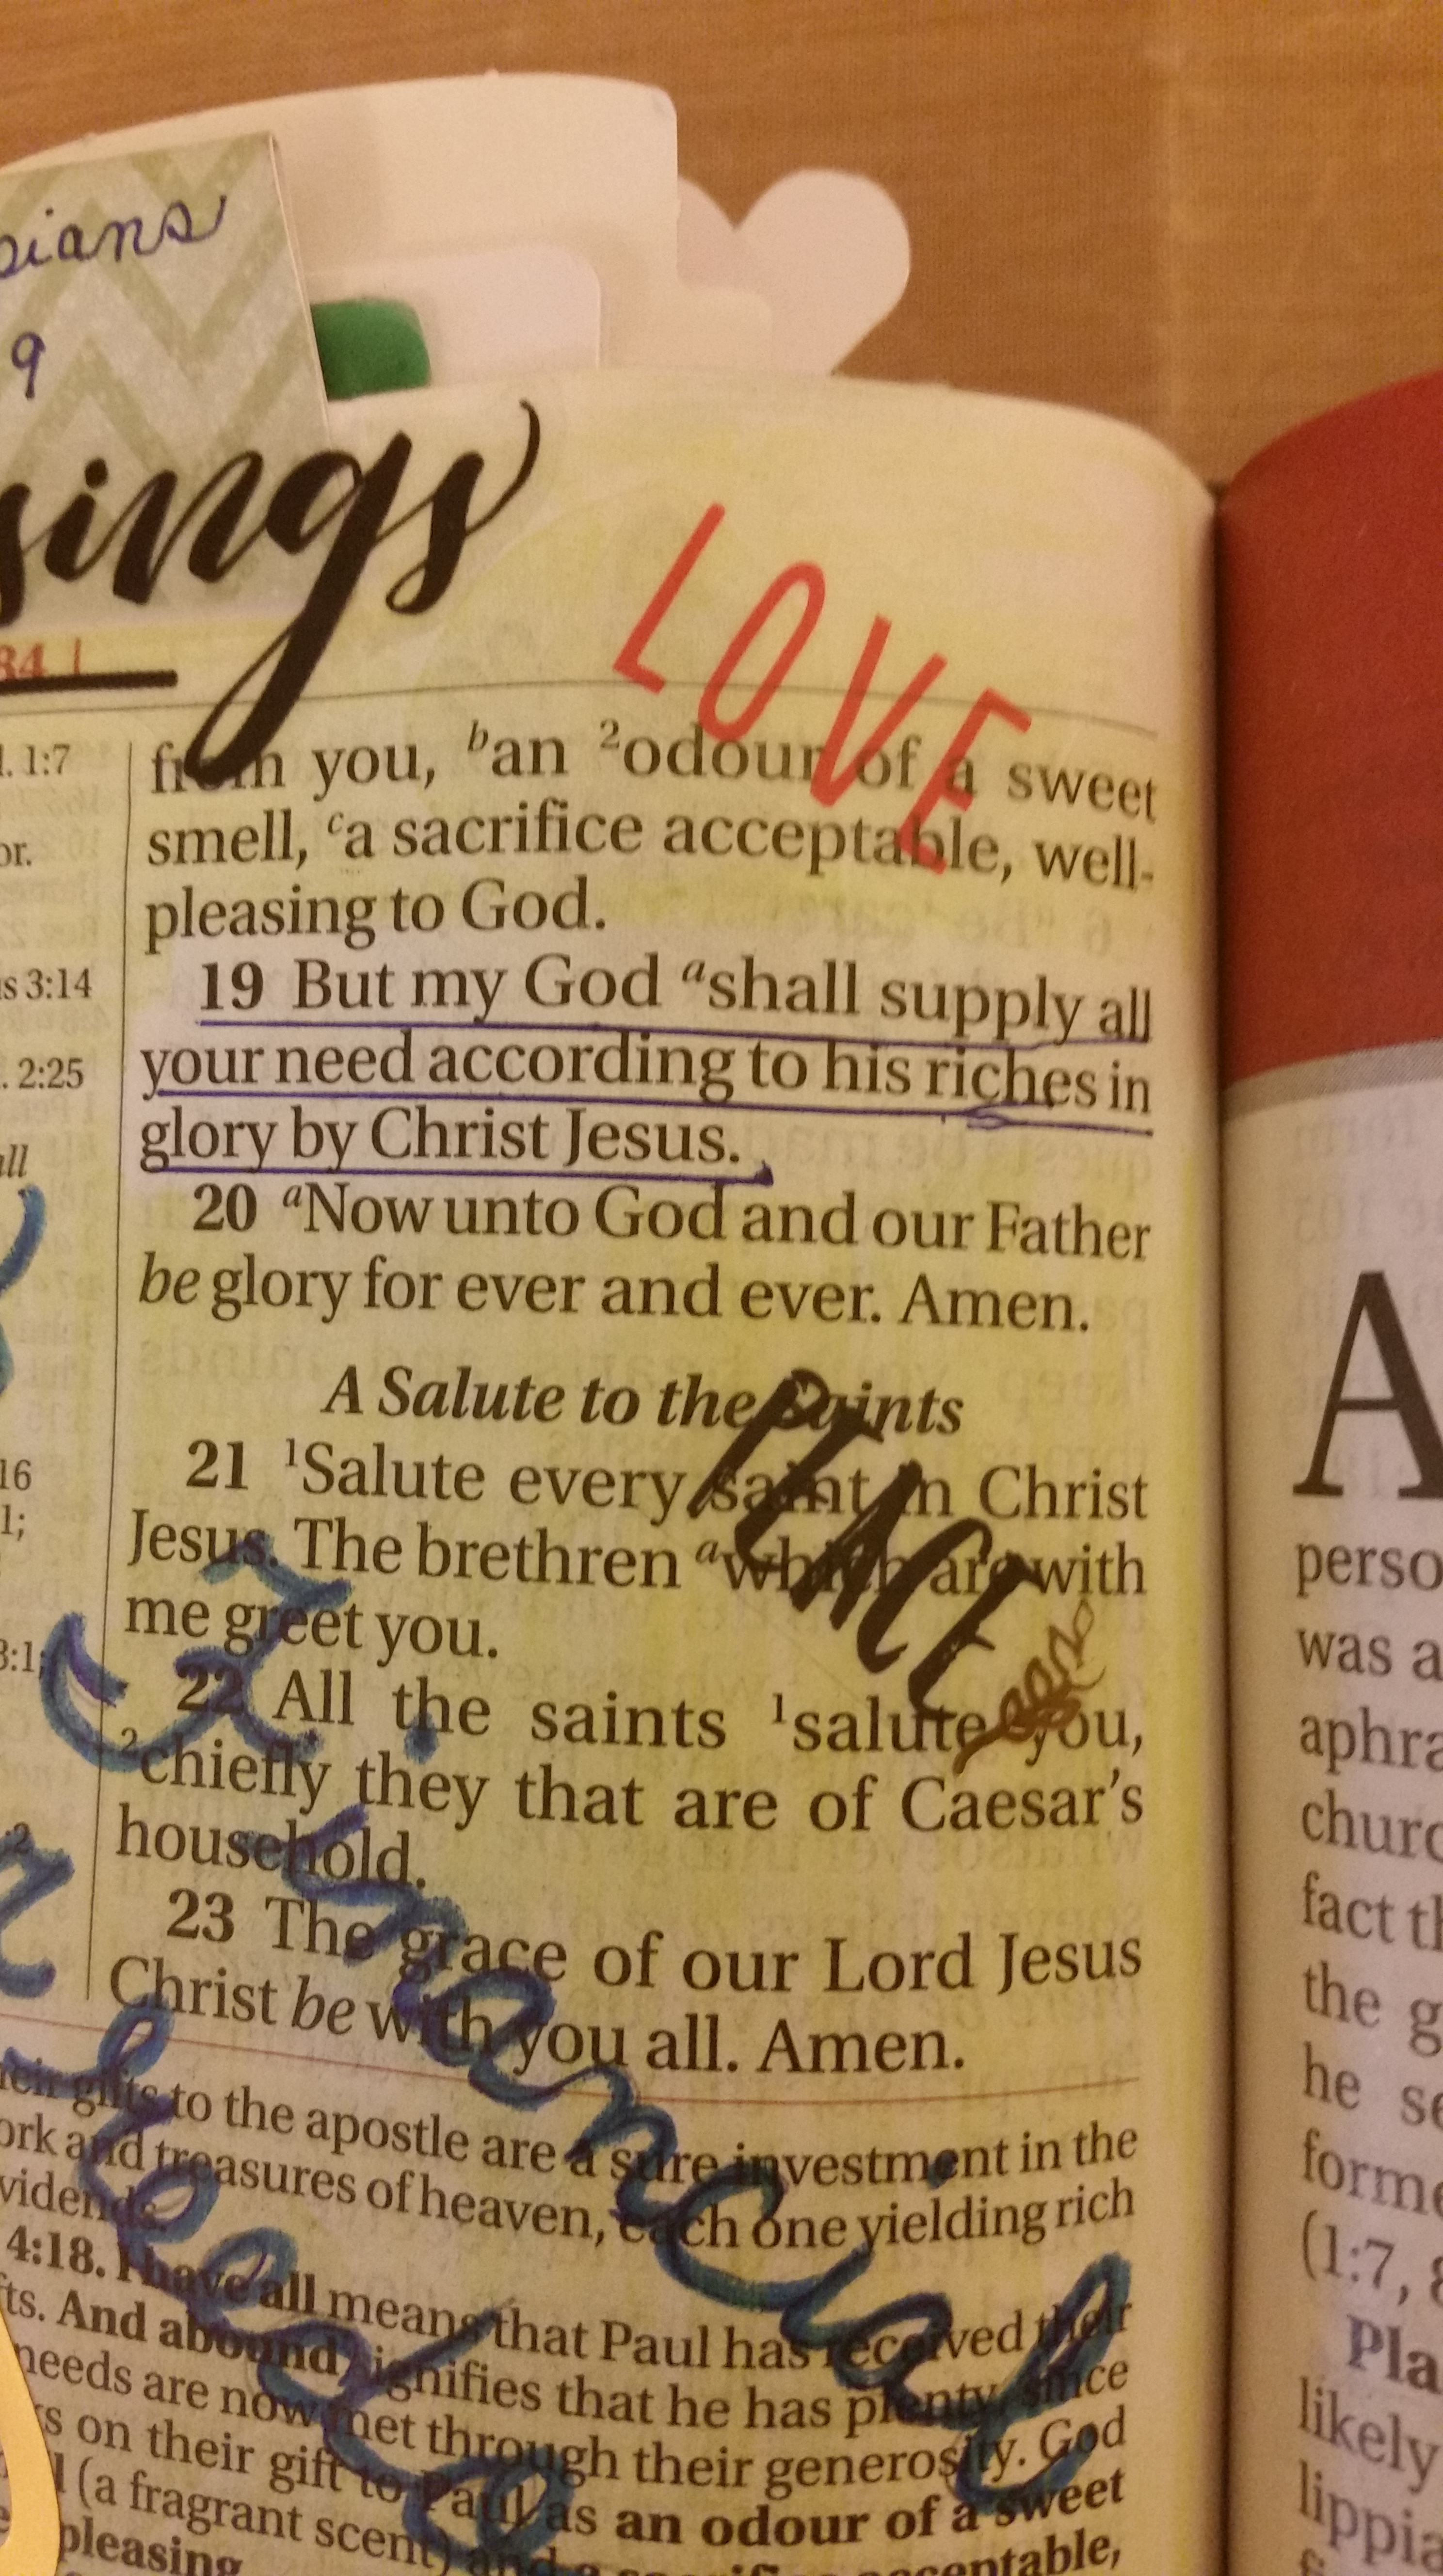 pians
9
sings
LOVE
84
1:7
from you, ᵇan ²odour of a sweet
smell, ᶜa sacrifice acceptable, well-
pleasing to God.
3:14
19 But my God ᵃshall supply all
2:25
your need according to his riches in
glory by Christ Jesus.
20 ᵃNow unto God and our Father
be glory for ever and ever. Amen.
A Salute to the Saints
PEACE
16
21 ¹Salute every saint in Christ
1;
Jesus. The brethren ᵃwhich are with
me greet you.
3:1;
22 All the saints ¹salute you,
²chiefly they that are of Caesar's
household.
23 The grace of our Lord Jesus
Christ be with you all. Amen.
Financial
needs
their gifts to the apostle are a sure investment in the
and treasures of heaven, each one yielding rich
4:18. I have all means that Paul has received their
And abound signifies that he has plenty, since
needs are now met through their generosity. God
on their gift to Paul as an odour of a sweet
(a fragrant scent) and a sacrifice acceptable,
pleasing
A
perso
was a
aphra
churc
fact th
the g
he se
forme
(1:7, 8
Pla
likely
lippia